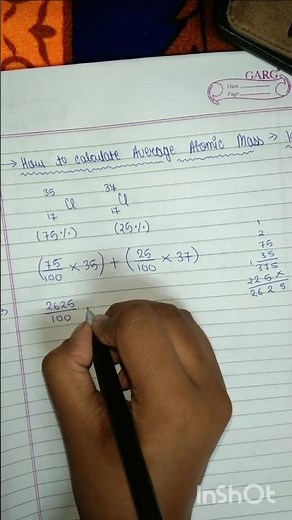 GARG
Date
Page
→ How to calculate Average Atomic Mass →
35 37
Cl Cl
17 17
(75%) (25%)
(75/100 × 35) + (25/100 × 37)
1
2
75
35
1 375
225×
2625
2625/100
InShOt